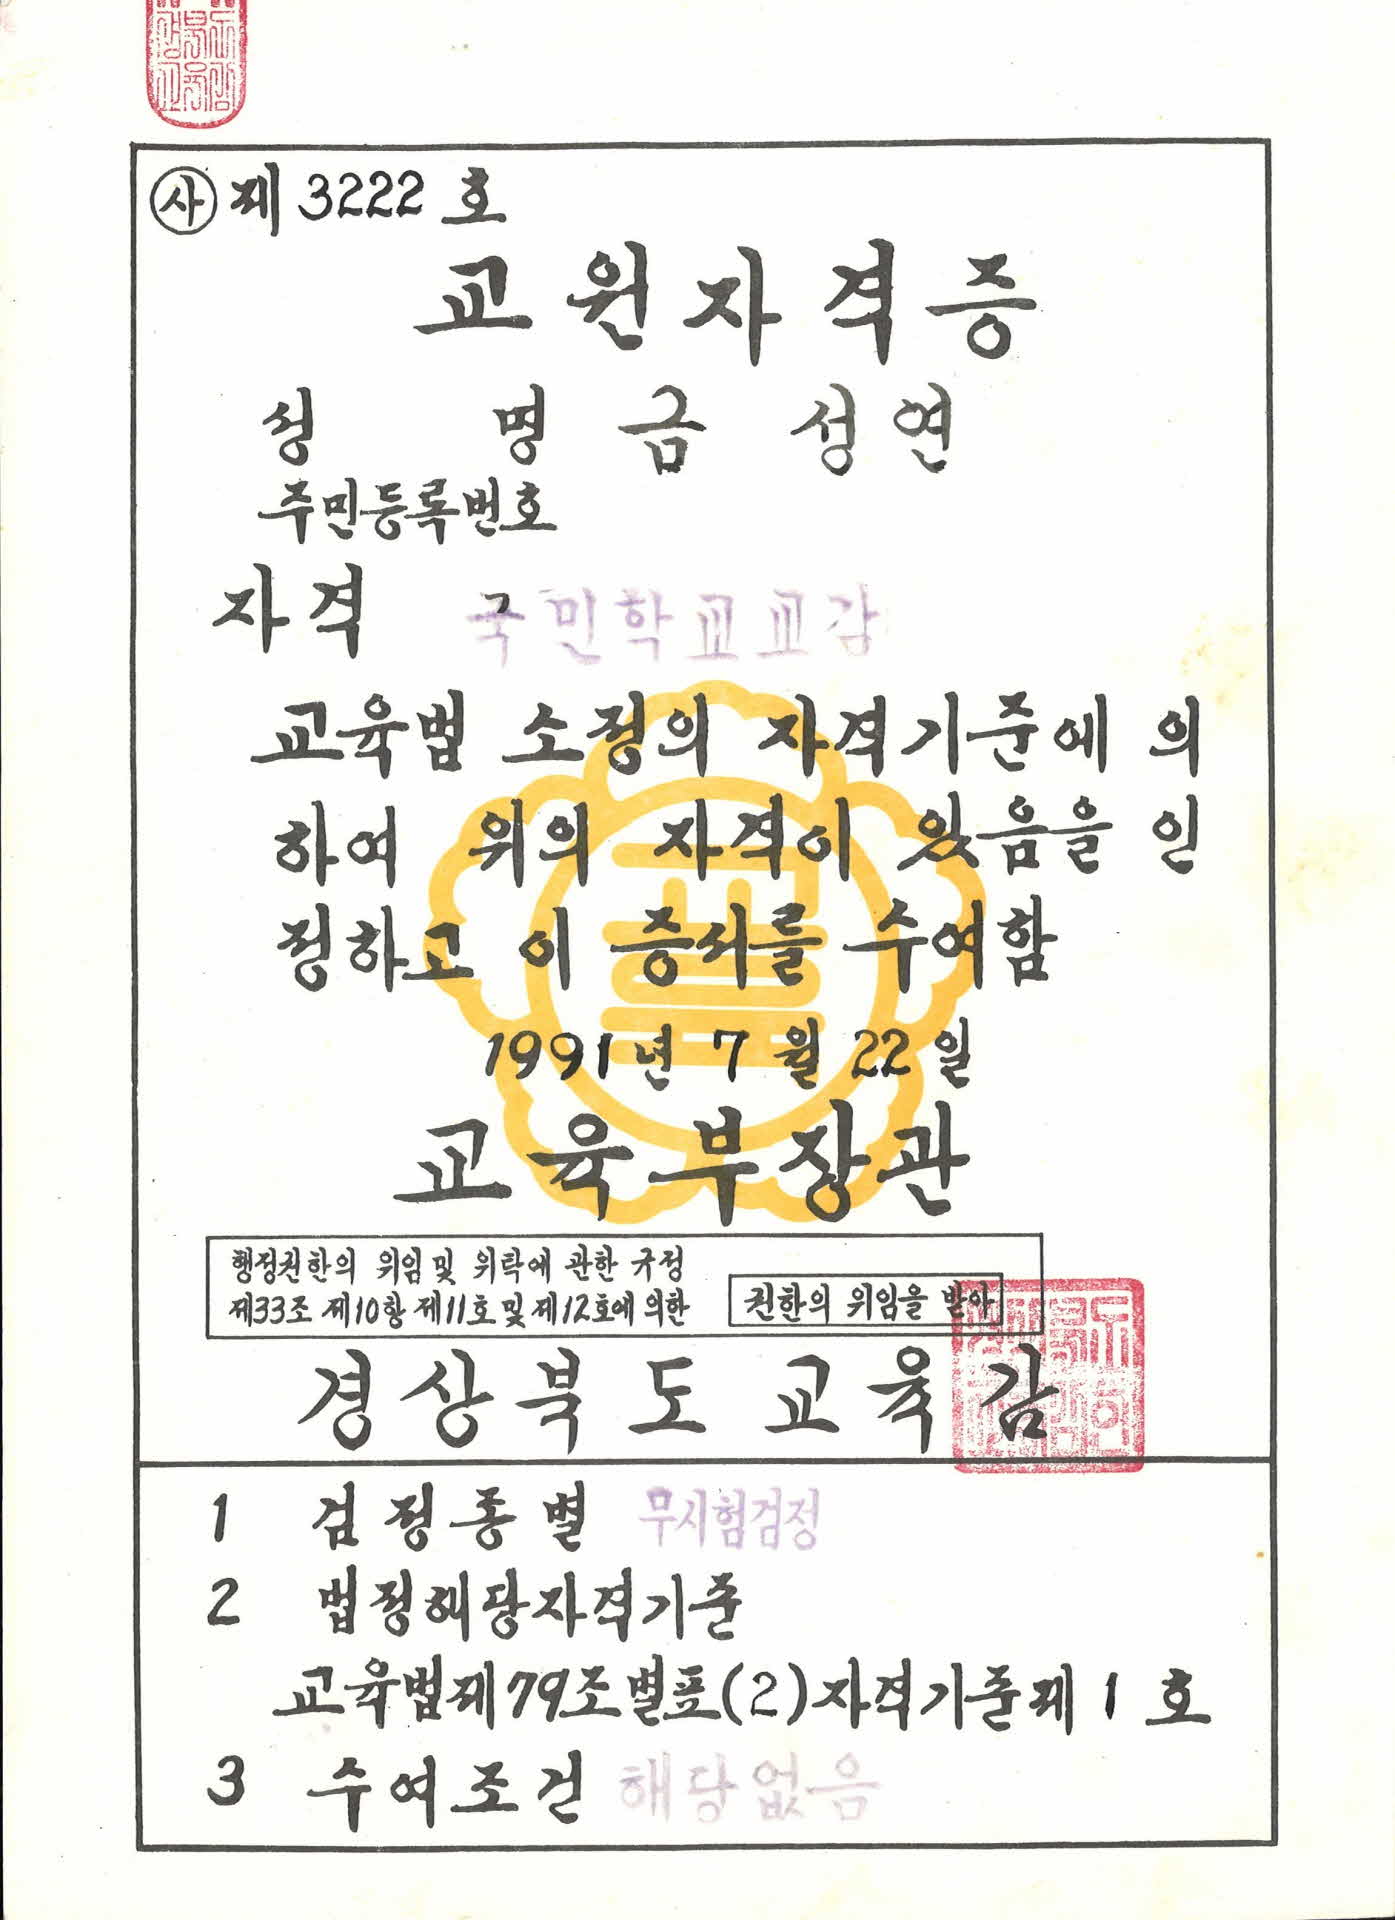 ㉴ 제 3222 호
교원자격증
성 명 금성연
주민등록번호
자격 국민학교교감
교육법 소정의 자격기준에 의
하여 위의 자격이 있음을 인
정하고 이 증서를 수여함
1991년 7월 22일
교육부장관
행정권한의 위임 및 위탁에 관한 규정
제33조 제10항 제11호 및 제12호에 의한
권한의 위임을 받아
경상북도 교육감
1 검정종별 무시험검정
2 법정해당자격기준
교육법제79조별표(2)자격기준제 1 호
3 수여조건 해당없음